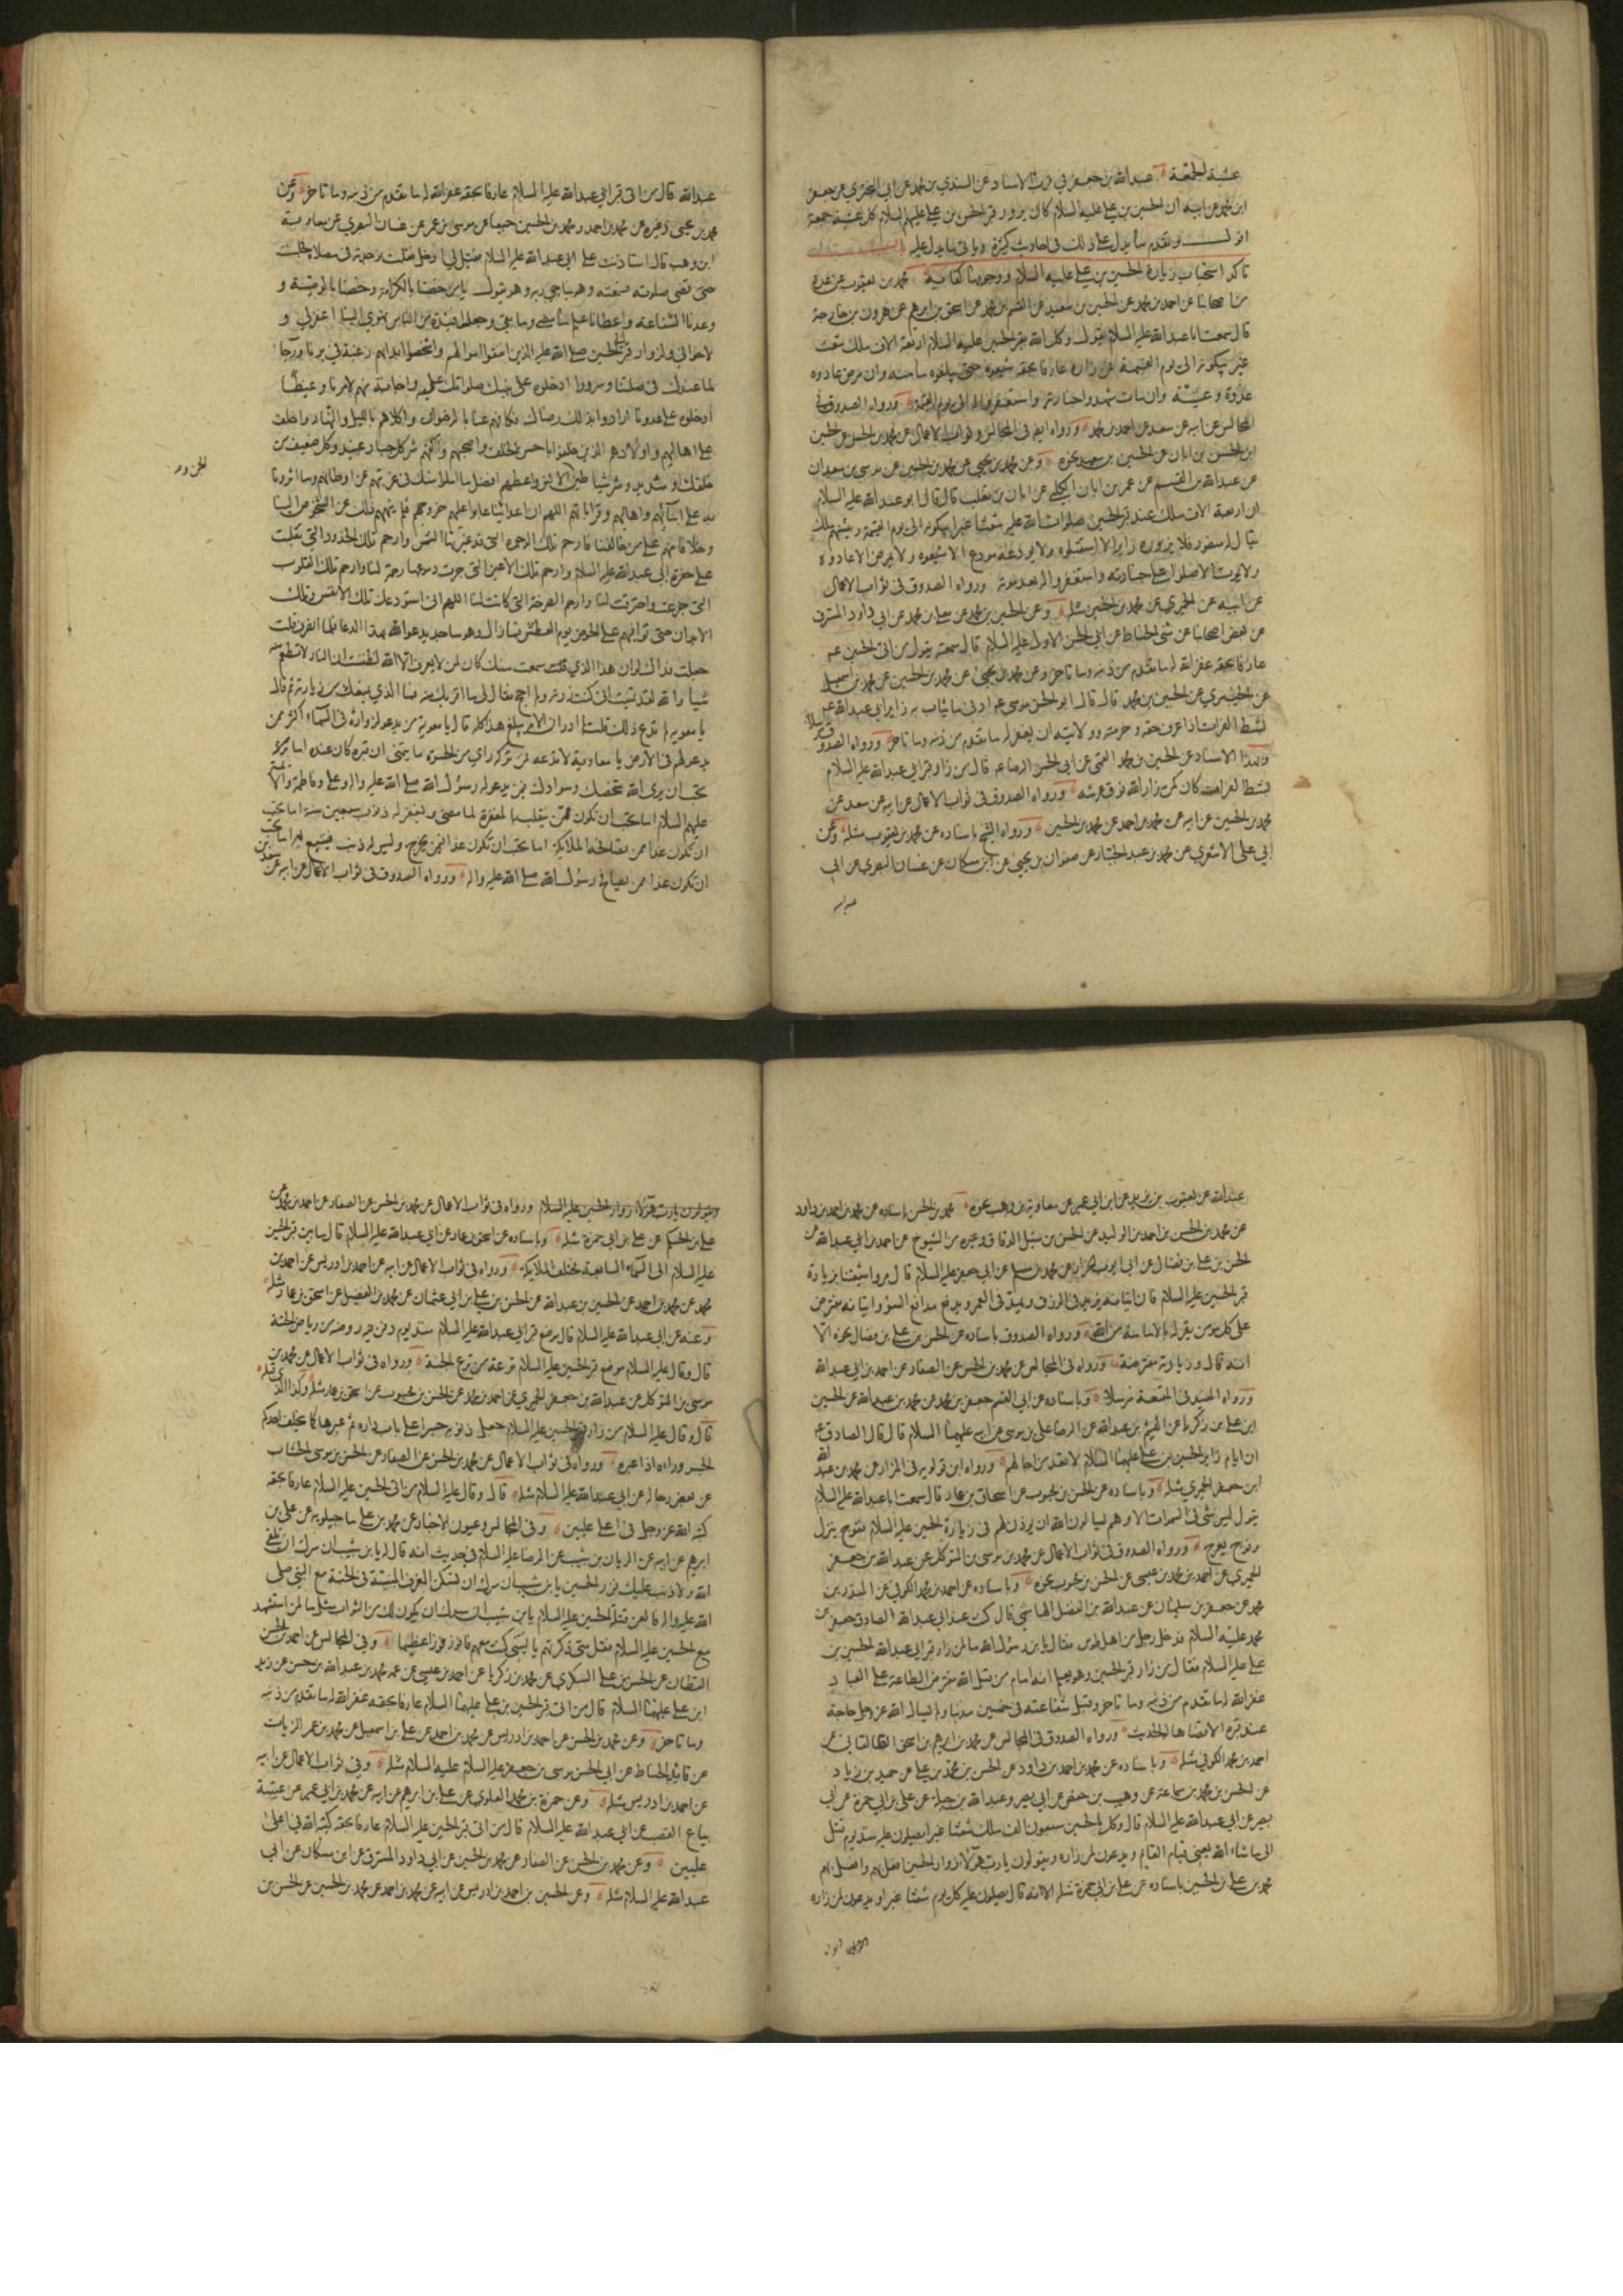 عشية الجمعة عبدالله بن جعفر في قرب الاسناد عن السندي بن محمد عن ابي البختري عن جعفر
ابن محمد عن ابيه ان الحسين بن علي عليه السلام كان يزور قبر الحسن بن علي عليهم السلام كل عشية جمعة
اقول وتقدم ما يدل على ذلك في احاديث كثيرة وياتي ما يدل عليه باب
تاكد استحباب زيارة الحسين بن علي عليه السلام ووجوبها كفاية محمد بن يعقوب عن عدة
من اصحابنا عن احمد بن محمد عن الحسين بن سعيد عن القسم بن محمد عن اسحق بن ابرهيم عن هرون بن خارجة
قال سمعت اباعبدالله عليه السلام يقول وكل الله بقبر الحسين عليه السلام اربعة الاف ملك شعث
غبر يبكونه الى يوم القيمة فمن زاره عارفا بحقه شيعوه حتى يبلغوه مامنه وان مرض عادوه
غدوة وعشية وان مات شهدوا جنازته واستغفروا له الى يوم القيمة ورواه الصدوق في
المجالس عن ابيه عن سعد عن احمد بن محمد ورواه ايضا في المجالس وثواب الاعمال عن محمد بن الحسن عن الحسين
ابن الحسن بن ابان عن الحسين بن سعيد نحوه وعن محمد بن يحيى عن محمد بن الحسين عن موسى بن سعدان
عن عبدالله بن القسم عن عمر بن ابان الكلبي عن ابان بن تغلب قال قال ابو عبدالله عليه السلام
ان اربعة الاف ملك عند قبر الحسين صلوات الله عليه شعثا غبرا يبكونه الى يوم القيمة رئيسهم ملك
يقال له منصور فلا يزوره زاير الا استقبلوه ولا يودعه مودع الا شيعوه ولا يمرض الا عادوه
ولا يموت الا صلوا على جنازته واستغفروا له بعد موته ورواه الصدوق في ثواب الاعمال
عن ابيه عن الحميري عن محمد بن الحسين مثله وعن الحسين بن محمد عن معلى بن محمد عن ابي داود المسترق
عن بعض اصحابنا عن مثنى الحناط عن ابي الحسن الاول عليه السلام قال سمعته يقول من اتى الحسين عم
عارفا بحقه غفر الله له ما تقدم من ذنبه وما تاخر وعن محمد بن يحيى عن محمد بن الحسين عن محمد بن اسمعيل
عن الخيبري عن الحسين بن محمد قال قال ابو الحسن موسى عم ادنى ما يثاب به زاير ابي عبدالله عم
بشط الفرات اذا عرف حقه وحرمته وولايته ان يغفر له ما تقدم من ذنبه وما تاخر ورواه الصدوق مرسلا
وبهذا الاسناد عن الحسين بن محمد القمي عن ابي الحسن الرضا عم قال من زار قبر ابي عبدالله عليه السلام
بشط الفرات كان كمن زار الله فوق عرشه ورواه الصدوق في ثواب الاعمال عن ابيه عن سعد عن
محمد بن الحسين عن ابيه عن محمد بن احمد عن محمد بن الحسين ورواه الشيخ باسناده عن محمد بن يعقوب مثله وعن
ابي علي الاشعري عن محمد بن عبد الجبار عن صفوان بن يحيى عن ابن مسكان عن غسان البصري عن ابي
عبدالله
عبدالله قال من اتى قبر ابي عبدالله عليه السلام عارفا بحقه غفر الله له ما تقدم من ذنبه وما تاخر وعن
محمد بن يحيى وغيره عن محمد بن احمد ومحمد بن الحسين جميعا عن موسى بن عمر عن غسان البصري عن معاوية
ابن وهب قال استاذنت على ابي عبدالله عليه السلام فقيل لي ادخل فدخلت فوجدته في مصلاه فجلست
حتى قضى صلوته فسمعته وهو يناجي ربه وهو يقول يا من خصنا بالكرامة وخصنا بالوصية و
وعدنا الشفاعة واعطانا علم ما مضى وما بقى وجعل افئدة من الناس تهوي الينا اغفر لي و
لاخواني ولزوار قبر الحسين صلى الله عليه الذين انفقوا اموالهم واشخصوا ابدانهم رغبة في برنا ورجا
لما عندك في صلتنا وسرورا ادخلوه على نبيك صلواتك عليه واجابة منهم لامرنا وغيظا
ادخلوه على عدونا ارادوا بذلك رضاك فكافهم عنا بالرضوان واكلاهم بالليل والنهار واخلف
على اهاليهم واولادهم الذين خلفوا باحسن الخلف واصحبهم واكفهم شر كل جبار عنيد وكل ضعيف من
خلقك او شديد وشر شياطين الانس والجن واعطهم افضل ما املوا منك في غربتهم عن اوطانهم وما اثرونا
الجن و
به على ابنائهم واهاليهم وقراباتهم اللهم ان اعدائنا عابوا عليهم خروجهم فلم ينههم ذلك عن الشخوص الينا
وخلافا منهم على من خالفنا فارحم تلك الوجوه التي قد غيرتها الشمس وارحم تلك الخدود التي تقلبت
على حفرة ابي عبدالله عليه السلام وارحم تلك الاعين التي جرت دموعها رحمة لنا وارحم تلك القلوب
التي جزعت واحترقت لنا وارحم الصرخة التي كانت لنا اللهم اني استودعك تلك الانفس وتلك
الابدان حتى توافيهم على الحوض يوم العطش فما زال وهو ساجد يدعو الله بهذا الدعا فلما انصرف قلت
جعلت فداك لو ان هذا الذي سمعت منك كان لمن لا يعرف الله لظننت ان النار لا تطعم منه
شيا والله لقد تمنيت اني كنت زرته ولم احج فقال لي ما اقربك منه فما الذي يمنعك من زيارته ثم قال
يا معوية لم تدع ذلك قلت لم ادر ان الامر يبلغ هذا كله قال يا معوية من يدعو لزواره في السماء اكثر ممن
يدعو لهم في الارض يا معاوية لا تدعه فمن تركه راى من الحسرة ما يتمنى ان قبره كان عنده اما
تحب ان يرى الله شخصك وسوادك فيمن يدعو له رسول الله صلى الله عليه واله وعلي وفاطمة والائمة
عليهم السلام اما تحب ان تكون ممن ينقلب بالمغفرة لما مضى ويغفر له ذنوب سبعين سنة اما تحب
ان تكون غدا ممن تصافحه الملايكة اما تحب ان تكون غدا فيمن يخرج وليس له ذنب فيتبع به اما تحب
ان تكون غدا ممن يصافح رسول الله صلى الله عليه واله ورواه الصدوق في ثواب الاعمال عن ابيه عن سعد بن
عبدالله عن يعقوب بن يزيد عن ابن ابي عمير عن معاوية بن وهب نحوه محمد بن الحسن باسناده عن محمد بن احمد بن داود
عن محمد بن الحسن بن احمد بن الوليد عن الحسن بن متيل الدقاق وغيره من الشيوخ عن احمد بن ابي عبدالله عن
الحسن بن علي بن فضال عن ابي ايوب الخزاز عن محمد بن مسلم عن ابي جعفر عليه السلام قال مروا شيعتنا بزيارة
قبر الحسين عليه السلام فان اتيانه يزيد في الرزق ويمد في العمر ويدفع مدافع السوء واتيانه مفترض
على كل مومن يقر له بالامامة من الله ورواه الصدوق باسناده عن الحسن بن علي بن فضال نحوه الا
انه قال وزيارته مفترضة ورواه في المجالس عن محمد بن الحسن عن الصفار عن احمد بن ابي عبدالله
ورواه المفيد في المقنعة مرسلا وباسناده عن ابي القسم جعفر بن محمد عن محمد بن عبدالله عن الحسين
ابن علي بن زكريا عن الهيثم بن عبدالله عن الرضا علي بن موسى عن ابيه عليهما السلام قال قال الصادق عم
ان ايام زاير الحسين بن علي عليهما السلام لا تعد من اجالهم ورواه ابن قولويه في المزار عن محمد بن عبدالله
ابن جعفر الحميري مثله وباسناده عن الحسن بن محبوب عن اسحاق بن عمار قال سمعت اباعبدالله عليه السلام
يقول ليس شي في السموات الا وهم يسالون الله ان يوذن لهم في زيارة الحسين عليه السلام ففوج ينزل
وفوج يعرج ورواه الصدوق في ثواب الاعمال عن محمد بن موسى بن المتوكل عن عبدالله بن جعفر
الحميري عن احمد بن محمد بن عيسى عن الحسن بن محبوب نحوه وباسناده عن احمد بن محمد الكوفي عن المنذر بن
محمد عن جعفر بن سليمان عن عبدالله بن الفضل الهاشمي قال كنت عند ابي عبدالله الصادق جعفر بن
محمد عليه السلام فدخل رجل من اهل طوس فقال يابن رسول الله ما لمن زار قبر ابي عبدالله الحسين بن
علي عليه السلام فقال من زار قبر الحسين وهو يعلم انه امام من قبل الله مفترض الطاعة على العباد
غفر الله له ما تقدم من ذنبه وما تاخر وقبل شفاعته في خمسين مذنبا ولم يسال الله عز وجل حاجة
عند قبره الا قضاها الحديث ورواه الصدوق في المجالس عن محمد بن ابرهيم بن اسحق الطالقاني عن
احمد بن محمد الكوفي مثله وباسناده عن محمد بن احمد بن داود عن الحسن بن محمد بن علي عن حميد بن زياد
عن الحسن بن محمد بن سماعة عن وهيب بن حفص عن ابي بصير وعبدالله بن جبلة عن علي بن ابي حمزة عن ابي
بصير عن ابي عبدالله عليه السلام قال وكل بالحسين سبعون الف ملك شعثا غبرا يصلون عليه منذ يوم قتل
الى ما شاء الله يعني قيام القايم ويدعون لمن زاره ويقولون يا رب هولاء زوار الحسين افعل بهم وافعل بهم
محمد بن علي بن الحسين باسناده عن علي بن ابي حمزة مثله الا انه قال يصلون عليه كل يوم شعثا غبرا ويدعون لمن زاره
ويقولون يا رب هولاء زوار الحسين عليه السلام ورواه في ثواب الاعمال عن محمد بن الحسن عن الصفار عن احمد بن محمد عن
علي بن الحكم عن علي بن ابي حمزة مثله وباسناده عن اسحق بن عمار عن ابي عبدالله عليه السلام قال ما بين قبر الحسين
عليه السلام الى السماء السابعة مختلف الملايكة ورواه في ثواب الاعمال عن ابيه عن احمد بن ادريس عن احمد بن
محمد عن محمد بن احمد عن الحسين بن عبدالله عن الحسن بن علي بن ابي عثمان عن محمد بن الفضيل عن اسحق بن عمار مثله
وعنه عن ابي عبدالله عليه السلام قال موضع قبر ابي عبدالله عليه السلام منذ يوم دفن فيه روضة من رياض الجنة
قال وقال عليه السلام موضع قبر الحسين عليه السلام ترعة من ترع الجنة ورواه في ثواب الاعمال عن محمد بن
موسى بن المتوكل عن عبدالله بن جعفر الحميري عن احمد بن محمد عن الحسن بن محبوب عن اسحق بن عمار مثله وكذا الذي قبله
قال وقال عليه السلام من زار قبر الحسين عليه السلام جعل ذنوبه جسرا على باب داره ثم عبرها كما يخلف احدكم
الجسر وراءه اذا عبره ورواه في ثواب الاعمال عن محمد بن الحسن عن الصفار عن الحسن بن موسى الخشاب
عن بعض رجاله عن ابي عبدالله عليه السلام مثله قال وقال عليه السلام من اتى الحسين عليه السلام عارفا بحقه
كتبه الله عز وجل في اعلى عليين وفي المجالس وعيون الاخبار عن محمد بن علي ماجيلويه عن علي بن
ابرهيم عن ابيه عن الريان بن شبيب عن الرضا عليه السلام في حديث انه قال له يا بن شبيب ان سرك ان تلقى
الله ولا ذنب عليك فزر الحسين يا بن شبيب ان سرك ان تسكن الغرف المبنية في الجنة مع النبي صلى
الله عليه واله فالعن قتلة الحسين عليه السلام يا بن شبيب ان سرك ان يكون لك من الثواب مثل ما لمن استشهد
مع الحسين عليه السلام فقل متى ذكرتهم يا ليتني كنت معهم فافوز فوزا عظيما وفي المجالس عن احمد بن الحسن
القطان عن الحسن بن علي السكري عن محمد بن زكريا عن احمد بن عيسى عن عمه محمد بن عبدالله بن حسن عن زيد
ابن علي عليهما السلام قال من اتى قبر الحسين بن علي عليهما السلام عارفا بحقه غفر الله له ما تقدم من ذنبه
وما تاخر وعن محمد بن الحسن عن احمد بن ادريس عن محمد بن احمد عن علي بن اسمعيل عن محمد بن عمر الزيات
عن قايد الحناط عن ابي الحسن موسى بن جعفر عليه السلام مثله وفي ثواب الاعمال عن ابيه
عن احمد بن ادريس مثله وعن حمزة بن محمد العلوي عن علي بن ابرهيم عن ابيه عن محمد بن ابي عمير عن عيينة
بياع القصب عن ابي عبدالله عليه السلام قال من اتى قبر الحسين عليه السلام عارفا بحقه كتبه الله في اعلى
عليين وعن محمد بن الحسن عن الصفار عن محمد بن الحسين عن ابي داود المسترق عن ابن مسكان عن ابي
عبدالله عليه السلام مثله وعن الحسين بن احمد بن ادريس عن ابيه عن محمد بن احمد عن محمد بن الحسين عن الحسن بن